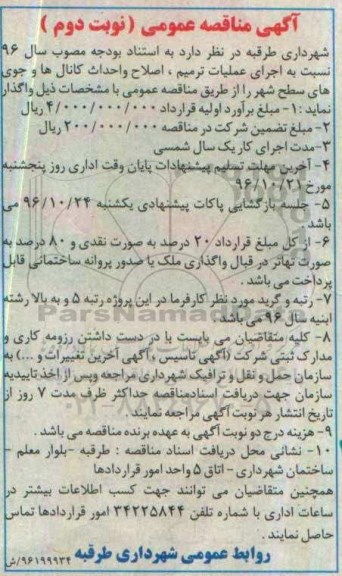 آگهی مناقصه عمومی (نوبت دوم)
شهرداری طرقبه در نظر دارد به استناد بودجه مصوب سال ۹۶
نسبت به اجرای عملیات ترمیم ، اصلاح واحداث کانال ها و جوی
های سطح شهر را از طریق مناقصه عمومی با مشخصات ذیل واگذار
نماید : ۱- مبلغ برآورد اولیه قرارداد ۴/۰۰۰/۰۰۰/۰۰۰ ریال
۲- مبلغ تضمین شرکت در مناقصه ۲۰۰/۰۰۰/۰۰۰ ریال
۳-مدت اجرای کار یک سال شمسی
۴- آخرین مهلت تسلیم پیشنهادات پایان وقت اداری روز پنجشنبه
مورخ ۹۶/۱۰/۲۱
۵- جلسه بازگشایی پاکات پیشنهادی یکشنبه ۹۶/۱۰/۲۴ می
باشد
۶- از کل مبلغ قرارداد ۲۰ درصد به صورت نقدی و ۸۰ درصد به
صورت تهاتر در قبال واگذاری ملک یا صدور پروانه ساختمانی قابل
پرداخت می باشد .
۷- رتبه و گرید مورد نظر کارفرما در این پروژه رتبه ۵ و به بالا رشته
ابنیه سال ۹۶ می باشد
۸- کلیه متقاضیان می بایست با در دست داشتن رزومه کاری و
مدارک ثبتی شرکت (آگهی تاسیس ، آگهی آخرین تغییرات و ...) به
سازمان حمل و نقل و ترافیک شهرداری مراجعه وپس از اخذ تاییدیه
سازمان جهت دریافت اسنادمناقصه حداکثر ظرف مدت ۷ روز از
تاریخ انتشار هر نوبت آگهی مراجعه نمایند .
۹- هزینه درج دو نوبت آگهی به عهده برنده مناقصه می باشد .
۱۰- نشانی محل دریافت اسناد مناقصه : طرقبه -بلوار معلم -
ساختمان شهرداری - اتاق ۵ واحد امور قراردادها
همچنین متقاضیان می توانند جهت کسب اطلاعات بیشتر در
ساعات اداری با شماره تلفن ۳۴۲۲۵۸۴۴ امور قراردادها تماس
حاصل نمایند .
روابط عمومی شهرداری طرقبه
۹۶۱۹۹۹۳۴/ش
ParsNamadData